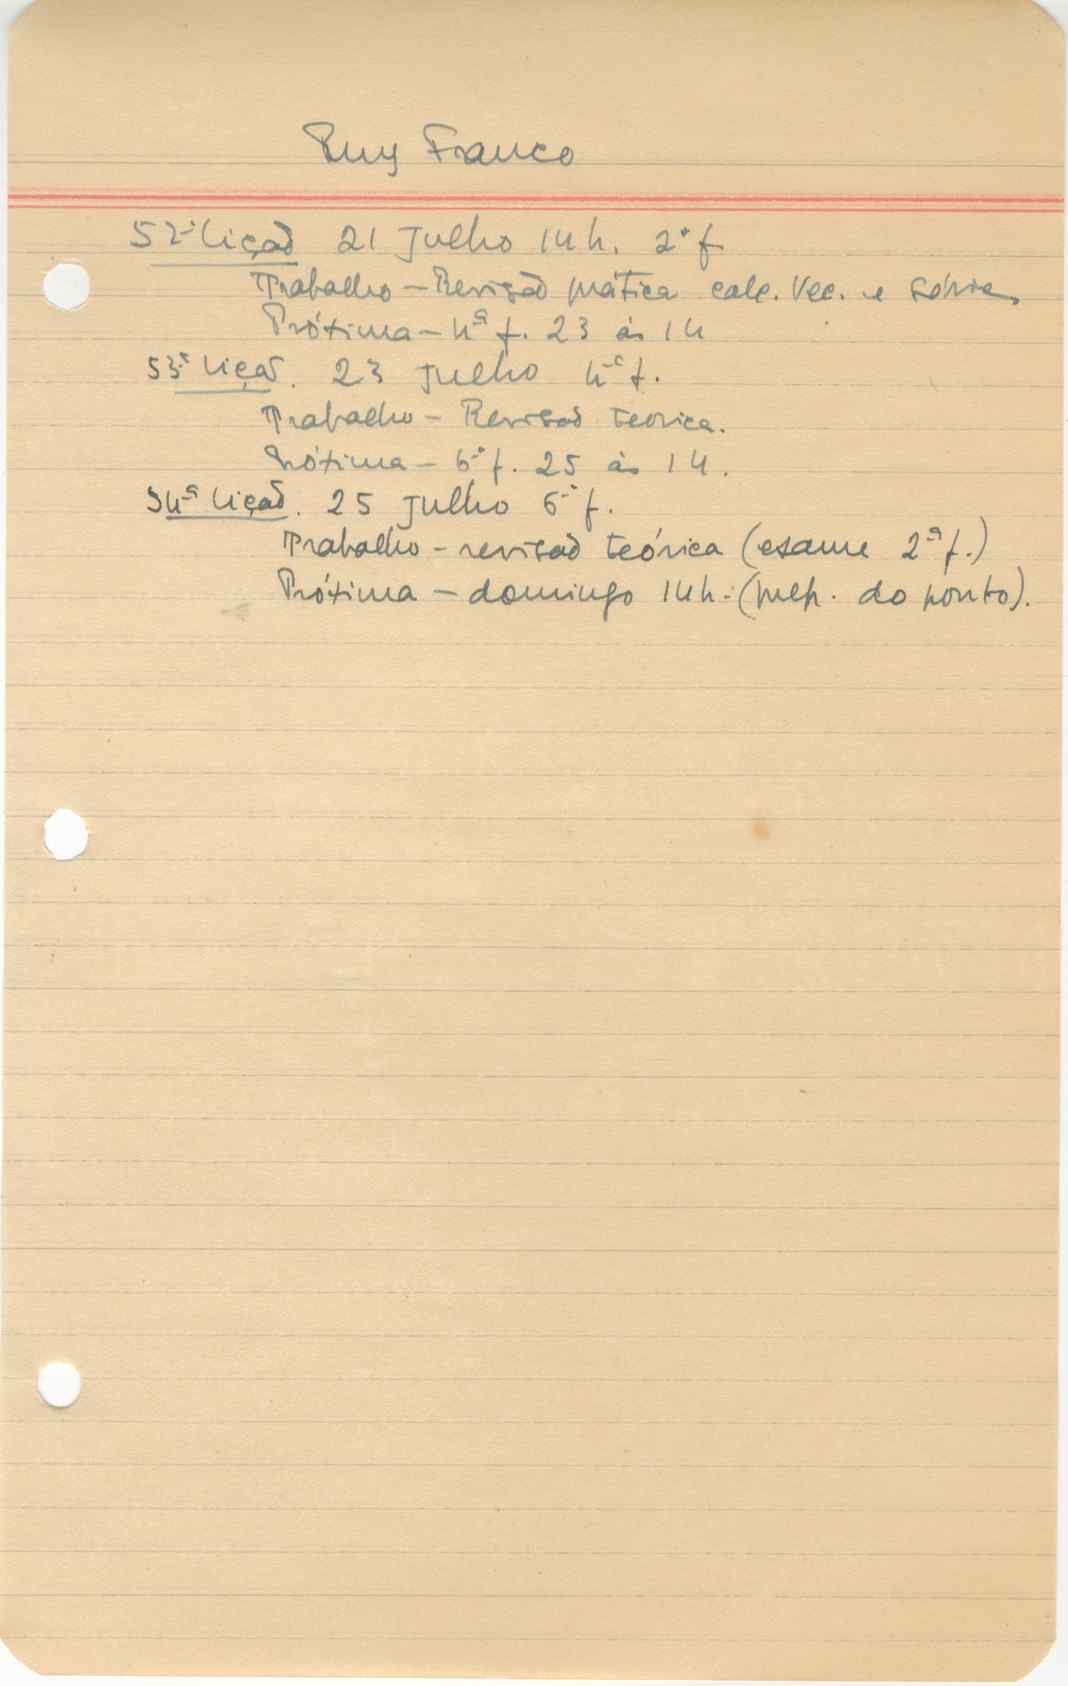 Ruy Franco
52ª Lição 21 Julho 14h. 2ª f.
Trabalho – Revisão prática calc. Vec. e séries
Próxima – 4ª f. 23 às 14
53ª Lição. 23 Julho 4ª f.
Trabalho – Revisão teorica.
Próxima – 6ª f. 25 às 14.
54ª Lição. 25 Julho 6ª f.
Trabalho – revisão teórica (exame 2ª f.)
Próxima – domingo 14h. do ponto).